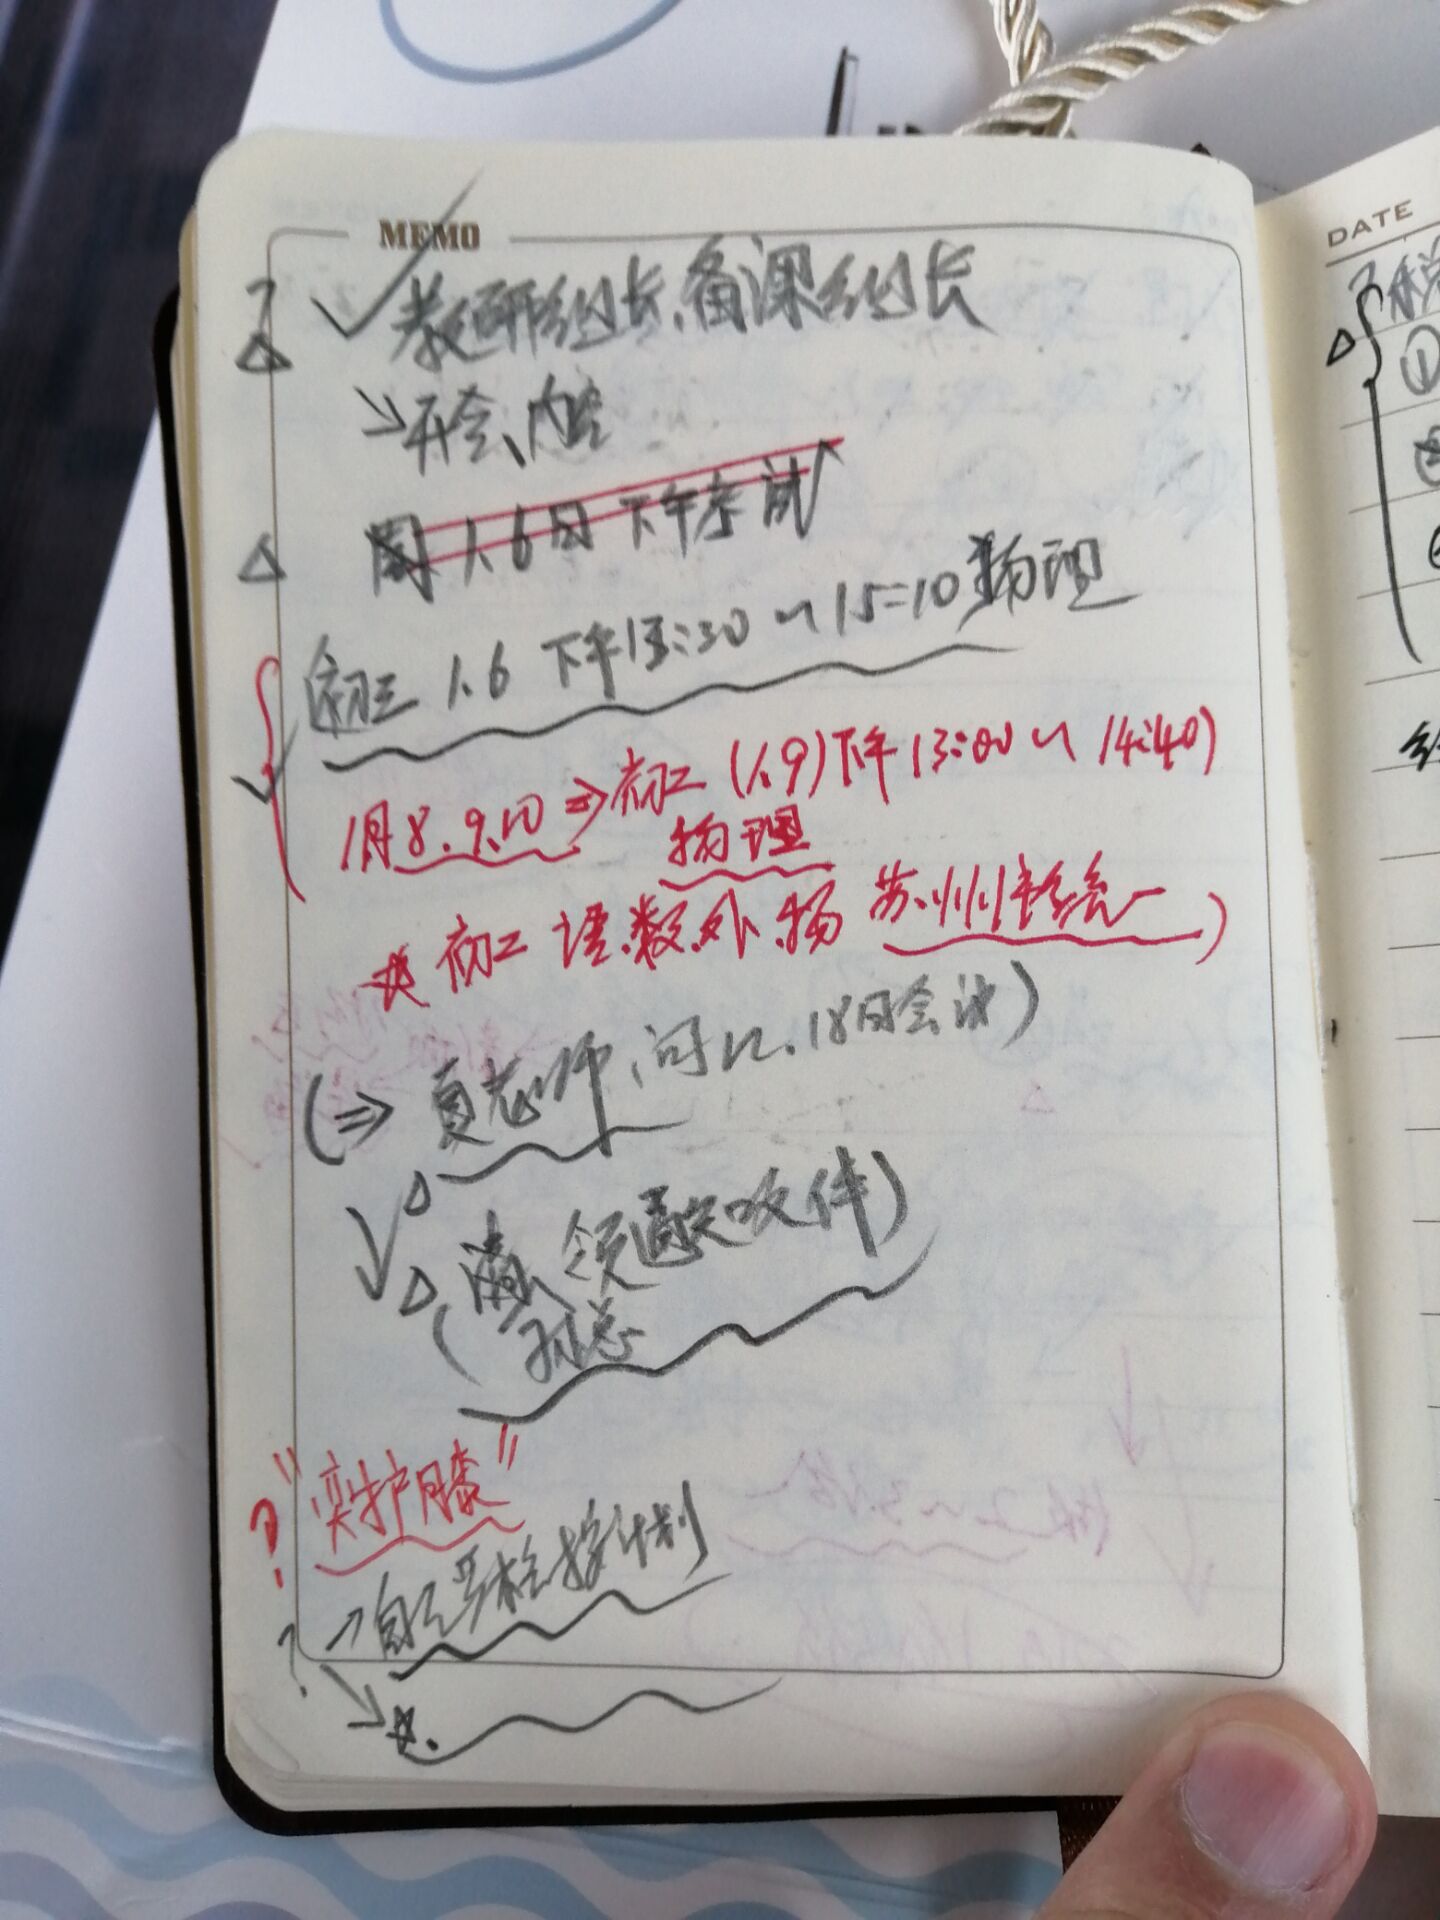 MEMO
? ✓ 教研组长、备课组长
△
→开会、内容
△ 周1.6日下午考试
初三 1.6 下午13:30~15:10物理
1月8.9.10 ⇒ 初二 (1.9)下午13:00~14:40)
物理
☆ 初二 语.数.外.物 苏州市统一)
(⇒ 夏老师、问 12.18日会计)
✓△
△( 领通知文件)
? "买护膝"
? →自己 按计划
→☆.
DATE
△
①
②